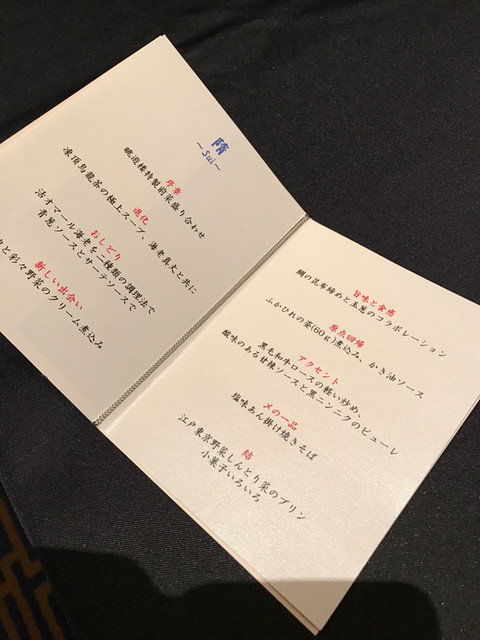 隋
～Sui～
序章
暁遊楼特製前菜盛り合わせ
進化
凍頂烏龍茶の極上スープ、海老真丈と共に
おしどり
活オマール海老を二種類の調理法で
青葱ソースとサーテソースで
新しい出会い
と彩々野菜のクリーム煮込み
旨味と食感
鯛の昆布締めと玉葱のコラボレーション
原点回帰
ふかひれの姿(60g)煮込み、かき油ソース
アクセント
黒毛和牛ロースの軽い炒め、
酸味のある甘辣ソースと黒ニンニクのピューレ
〆の一品
塩味あん掛け焼きそば
結
江戸東京野菜しんとり菜のプリン
小菓子いろいろ